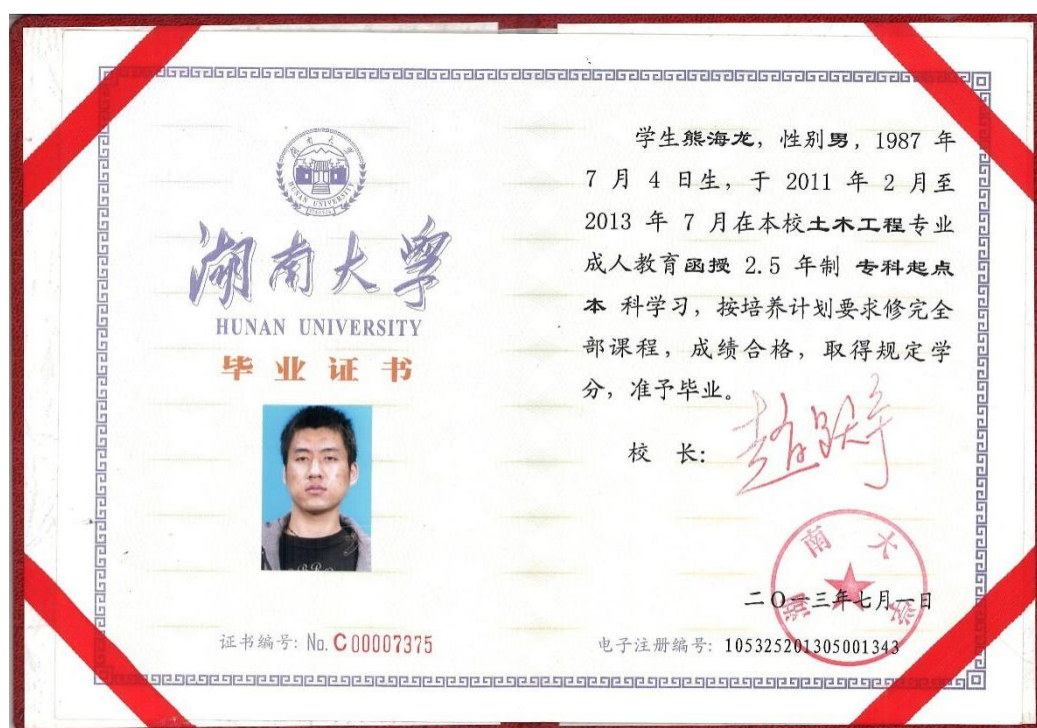 湖南大学
HUNAN UNIVERSITY
湖南大学
HUNAN UNIVERSITY
毕业证书
证书编号: No. C 00007375
学生熊海龙，性别男，1987 年
7 月 4 日生，于 2011 年 2 月至
2013 年 7 月在本校土木工程专业
成人教育函授 2.5 年制 专科起点
本 科学习，按培养计划要求修完全
部课程，成绩合格，取得规定学
分，准予毕业。
校 长: 赵跃宇
湖南大学
二〇一三年七月一日
电子注册编号: 105325201305001343